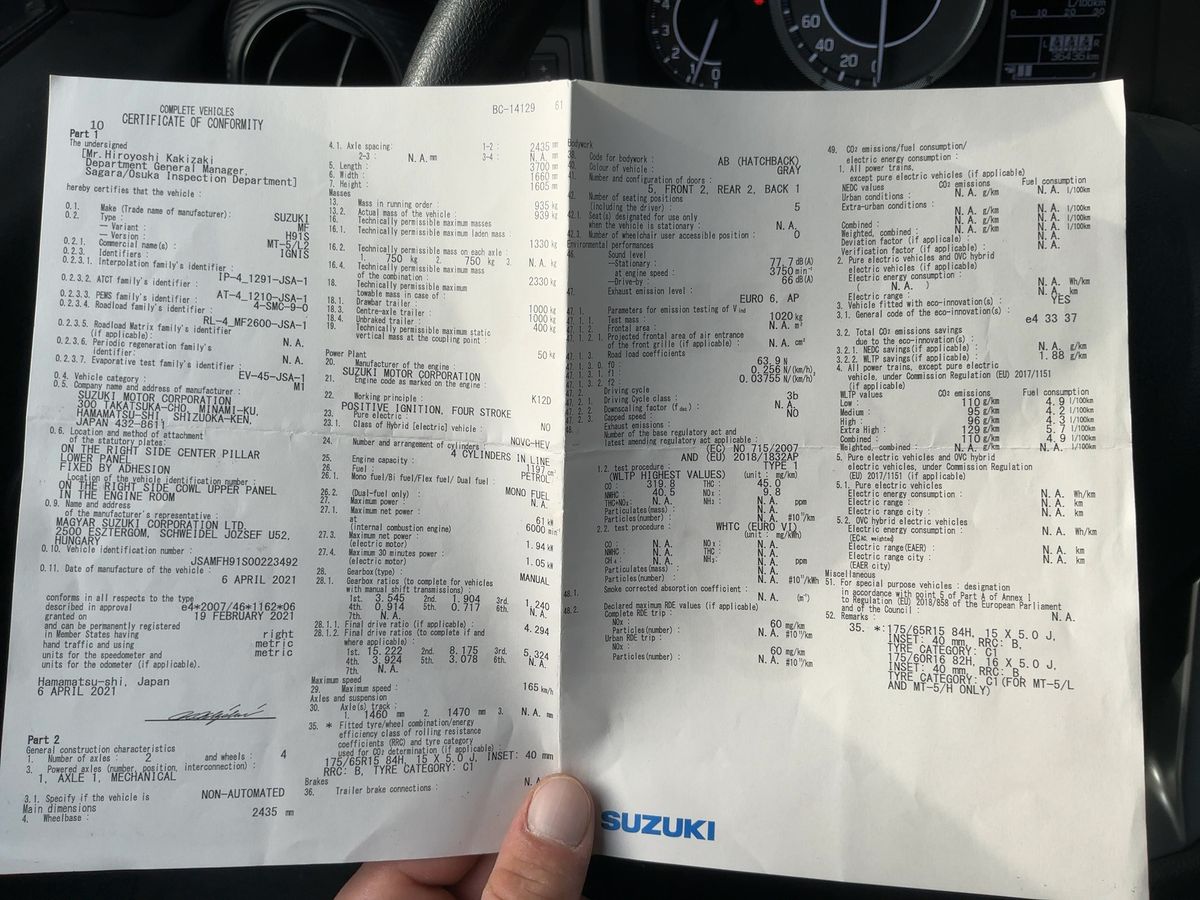 COMPLETE VEHICLES
CERTIFICATE OF CONFORMITY
BC-14129 61
10
Part 1
The undersigned
[Mr. Hiroyoshi Kakizaki
Department General Manager,
Sagara/Osuka Inspection Department]
hereby certifies that the vehicle :
0.1. Make (Trade name of manufacturer): SUZUKI
0.2. Type : MF
— Variant : H91S
— Version : MT-5/L2
0.2.1. Commercial name(s) : IGNIS
0.2.3. Identifiers :
0.2.3.1. Interpolation family's identifier :
IP-4_1291-JSA-1
0.2.3.2. ATCT family's identifier :
AT-4_1210-JSA-1
0.2.3.3. PEMS family's identifier : 4-SMC-9-0
0.2.3.4. Roadload family's identifier :
RL-4_MF2600-JSA-1
0.2.3.5. Roadload Matrix family's identifier
(if applicable): N. A.
0.2.3.6. Periodic regeneration family's
identifier: N. A.
0.2.3.7. Evaporative test family's identifier :
EV-45-JSA-1
0.4. Vehicle category : M1
0.5. Company name and address of manufacturer :
SUZUKI MOTOR CORPORATION
300 TAKATSUKA-CHO, MINAMI-KU,
HAMAMATSU-SHI, SHIZUOKA-KEN,
JAPAN 432-8611
0.6. Location and method of attachment
of the statutory plates:
ON THE RIGHT SIDE CENTER PILLAR
LOWER PANEL
FIXED BY ADHESION
Location of the vehicle identification number :
ON THE RIGHT SIDE COWL UPPER PANEL
IN THE ENGINE ROOM
0.9. Name and address
of the manufacturer's representative :
MAGYAR SUZUKI CORPORATION LTD.
2500 ESZTERGOM, SCHWEIDEL JOZSEF U52,
HUNGARY
0.10. Vehicle identification number :
JSAMFH91S00223492
0.11. Date of manufacture of the vehicle :
6 APRIL 2021
conforms in all respects to the type
described in approval e4*2007/46*1162*06
granted on 19 FEBRUARY 2021
and can be permanently registered
in Member States having right
hand traffic and using metric
units for the speedometer and metric
units for the odometer (if applicable).
Hamamatsu-shi, Japan
6 APRIL 2021
Part 2
General construction characteristics
1. Number of axles : 2 and wheels : 4
3. Powered axles (number, position, interconnection) :
1, AXLE 1, MECHANICAL
3.1. Specify if the vehicle is NON-AUTOMATED
Main dimensions
4. Wheelbase: 2435 mm
4.1. Axle spacing: 1-2: 2435 mm
2-3: N. A. mm 3-4: N. A. mm
5. Length : 3700 mm
6. Width : 1660 mm
7. Height : 1605 mm
Masses
13. Mass in running order : 935 kg
13.2. Actual mass of the vehicle : 939 kg
16. Technically permissible maximum masses
16.1. Technically permissible maximum laden mass :
1330 kg
16.2. Technically permissible mass on each axle :
1. 750 kg 2. 750 kg 3. N. A. kg
16.4. Technically permissible maximum mass
of the combination : 2330 kg
18. Technically permissible maximum
towable mass in case of :
18.1. Drawbar trailer : 1000 kg
18.3. Centre-axle trailer : 1000 kg
18.4. Unbraked trailer : 400 kg
19. Technically permissible maximum static
vertical mass at the coupling point :
50 kg
Power Plant
20. Manufacturer of the engine :
SUZUKI MOTOR CORPORATION
21. Engine code as marked on the engine :
K12D
22. Working principle :
POSITIVE IGNITION, FOUR STROKE
23. Pure electric : NO
23.1. Class of Hybrid [electric] vehicle :
NOVC-HEV
24. Number and arrangement of cylinders :
4 CYLINDERS IN LINE
25. Engine capacity : 1197 cm³
26. Fuel : PETROL
26.1. Mono fuel/Bi fuel/Flex fuel/ Dual fuel :
MONO FUEL
26.2. (Dual-fuel only) : N. A.
27. Maximum power :
27.1. Maximum net power : 61 kW
at 6000 min⁻¹
(internal combustion engine)
27.3. Maximum net power : 1.94 kW
(electric motor)
27.4. Maximum 30 minutes power : 1.05 kW
(electric motor)
28. Gearbox (type) : MANUAL
28.1. Gearbox ratios (to complete for vehicles
with manual shift transmissions) :
1st. 3.545 2nd. 1.904 3rd. 1.240
4th. 0.914 5th. 0.717 6th. N. A.
7th. N. A.
28.1.1. Final drive ratio (if applicable) : 4.294
28.1.2. Final drive ratios (to complete if and
where applicable) :
1st. 15.222 2nd. 8.175 3rd. 5.324
4th. 3.924 5th. 3.078 6th. N. A.
7th. N. A.
Maximum speed
29. Maximum speed : 165 km/h
Axles and suspension
30. Axle(s) track :
1. 1460 mm 2. 1470 mm 3. N. A. mm
35. * Fitted tyre/wheel combination/energy
efficiency class of rolling resistance
coefficients (RRC) and tyre category
used for CO₂ determination (if applicable) :
175/65R15 84H, 15 X 5.0 J, INSET: 40 mm
RRC: B, TYRE CATEGORY: C1
Brakes
36. Trailer brake connections : N. A.
Bodywork
38. Code for bodywork : AB (HATCHBACK)
40. Colour of vehicle : GRAY
41. Number and configuration of doors :
5, FRONT 2, REAR 2, BACK 1
42. Number of seating positions
(including the driver) : 5
42.1. Seat(s) designated for use only
when the vehicle is stationary : N. A.
42.3. Number of wheelchair user accessible position : 0
Environmental performances
46. Sound level
—Stationary: 77.7 dB(A)
at engine speed : 3750 min⁻¹
—Drive-by: 66 dB(A)
47. Exhaust emission level :
EURO 6, AP
47.1. Parameters for emission testing of V ind
47.1.1. Test mass : 1020 kg
47.1.2. Frontal area : N. A. m²
47.1.2.1. Projected frontal area of air entrance
of the front grille (if applicable) : N. A. cm²
47.1.3. Road load coefficients
47.1.3.0. f0 : 63.9 N
47.1.3.1. f1 : 0.256 N/(km/h),
47.1.3.2. f2 : 0.03755 N/(km/h)²
47.2. Driving cycle
47.2.1. Driving Cycle class : 3b
47.2.2. Downscaling factor (f dsc) : N. A.
47.2.3. Capped speed : NO
Exhaust emissions :
Number of the base regulatory act and
latest amending regulatory act applicable :
(EC) NO 715/2007
AND (EU) 2018/1832AP
1.2. test procedure : TYPE 1
(WLTP HIGHEST VALUES) (unit : mg/km)
CO : 319.8 THC : 45.0
NMHC : 40.5 NOx : 9.8
THC+NOx : N. A. NH₃ : N. A. ppm
Particulates (mass) : N. A.
Particles (number) : N. A. #10¹¹/km
2.2. test procedure : WHTC (EURO VI)
(unit : mg/kWh)
CO : N. A. NOx : N. A.
NMHC : N. A. THC : N. A.
CH₄ : N. A. NH₃ : N. A. ppm
Particulates (mass) : N. A.
Particles (number) : N. A. #10¹¹/kWh
48.1. Smoke corrected absorption coefficient :
N. A. (m⁻¹)
48.2. Declared maximum RDE values (if applicable)
Complete RDE trip :
NOx : 60 mg/km
Particles (number) : N. A. #10¹¹/km
Urban RDE trip :
NOx : 60 mg/km
Particles (number) : N. A. #10¹¹/km
SUZUKI
49. CO₂ emissions/fuel consumption/
electric energy consumption :
1. All power trains,
except pure electric vehicles (if applicable)
NEDC values CO₂ emissions Fuel consumption
Urban conditions : N. A. g/km N. A. l/100km
Extra-urban conditions :
N. A. g/km N. A. l/100km
Combined : N. A. g/km N. A. l/100km
Weighted, combined : N. A. g/km N. A. l/100km
Deviation factor (if applicable) : N. A.
Verification factor (if applicable) : N. A.
2. Pure electric vehicles and OVC hybrid
electric vehicles (if applicable)
Electric energy consumption :
( N. A. ) N. A. Wh/km
Electric range : N. A. km
3. Vehicle fitted with eco-innovation(s) : YES
3.1. General code of the eco-innovation(s) :
e4 33 37
3.2. Total CO₂ emissions savings
due to the eco-innovation(s) :
3.2.1. NEDC savings(if applicable) : N. A. g/km
3.2.2. WLTP savings(if applicable) : 1.88 g/km
4. All power trains, except pure electric
vehicle, under Commission Regulation (EU) 2017/1151
(if applicable)
WLTP values CO₂ emissions Fuel consumption
Low : 110 g/km 4.9 l/100km
Medium : 95 g/km 4.2 l/100km
High : 96 g/km 4.3 l/100km
Extra High : 129 g/km 5.7 l/100km
Combined : 110 g/km 4.9 l/100km
Weighted, combined : N. A. g/km N. A. l/100km
5. Pure electric vehicles and OVC hybrid
electric vehicles, under Commission Regulation
(EU) 2017/1151 (if applicable)
5.1. Pure electric vehicles
Electric energy consumption : N. A. Wh/km
Electric range : N. A. km
Electric range city : N. A. km
5.2. OVC hybrid electric vehicles
Electric energy consumption : N. A. Wh/km
(EC AC, weighted)
Electric range(EAER) : N. A. km
Electric range city : N. A. km
(EAER city)
Miscellaneous
51. For special purpose vehicles : designation
in accordance with point 5 of Part A of Annex I
to Regulation (EU) 2018/858 of the European Parliament
and of the Council : N. A.
52. Remarks :
35. *:175/65R15 84H, 15 X 5.0 J,
INSET: 40 mm, RRC: B,
TYRE CATEGORY: C1
175/60R16 82H, 16 X 5.0 J,
INSET: 40 mm, RRC: B,
TYRE CATEGORY: C1(FOR MT-5/L
AND MT-5/H ONLY)
4
3
2
1
0
60
40
20
0
L/100km
0 10 20 30
36436 km